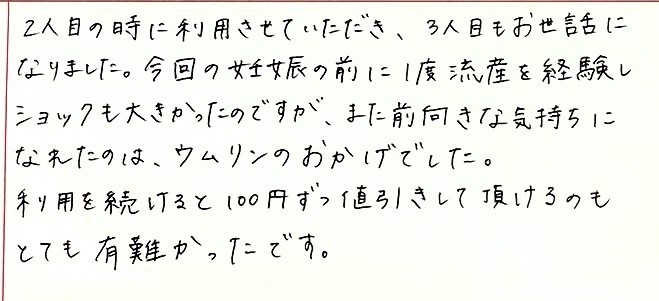 2人目の時に利用させていただき、3人目もお世話に
なりました。今回の妊娠の前に1度流産を経験し
ショックも大きかったのですが、また前向きな気持ちに
なれたのは、ウムリンのおかげでした。
利用を続けると100円ずつ値引きして頂けるのも
とても有難かったです。